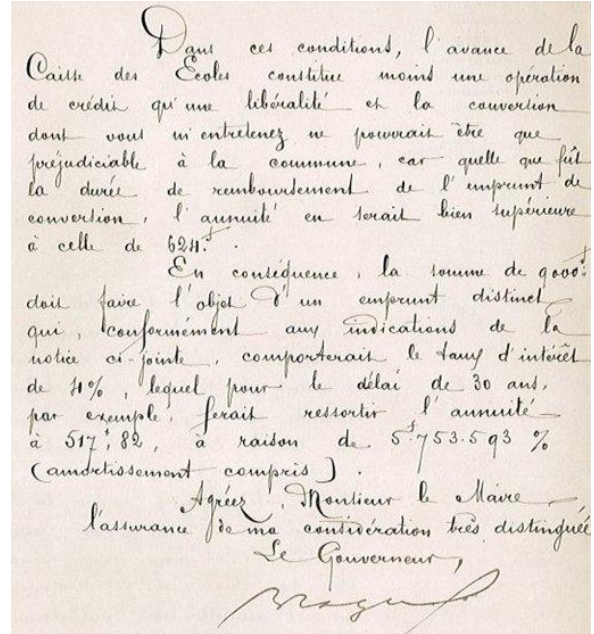 Dans ces conditions, l'avance de la
Caisse des Ecoles constitue moins une opération
de crédit qu'une libéralité et la conversion
dont vous m'entretenez ne pourrait être que
préjudiciable à la commune, car quelle que fût
la durée de remboursement de l'emprunt de
conversion, l'annuité en serait bien supérieure
à celle de 624f.
En conséquence, la somme de 9000f
doit faire l'objet d'un emprunt distinct
qui, conformément aux indications de la
notice ci-jointe, comporterait le taux d'intérêt
de 4%, lequel pour le délai de 30 ans,
par exemple, ferait ressortir l'annuité
à 517f,82, à raison de 5f.753.593 %
(amortissement compris).
Agréez, Monsieur le Maire
l'assurance de ma considération très distinguée
Le Gouverneur,